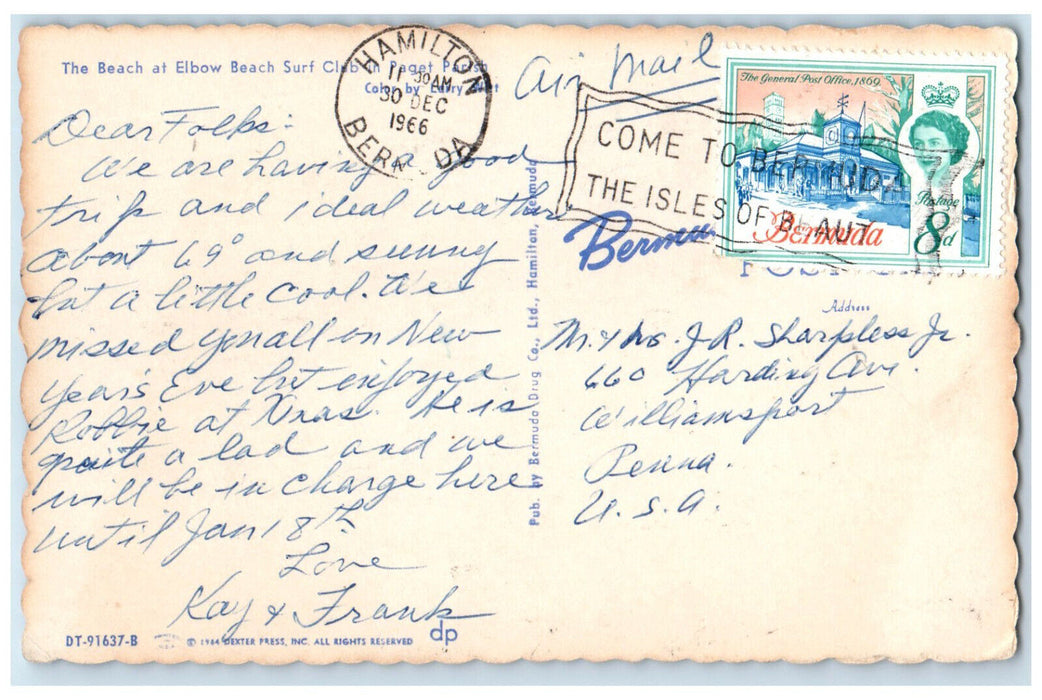 The Beach at Elbow Beach Surf Club in Paget Parish
Color by
HAMILTON
11 30AM
30 DEC
1966
BERMUDA
Air Mail
COME TO BERMUDA
THE ISLES OF BEAUT
The General Post Office, 1869.
Postage
8d
Bermuda
Bermu
Dear Folks:
We are having a good
trip and ideal weather
about 69° and sunny
but a little cool. We
missed you all on New
Year's Eve but enjoyed
Robbie at Xmas. He is
quite a lad and we
will be in charge here
until Jan 18th
Love
Kay & Frank
Pub. by Bermuda Drug Co., Ltd., Hamilton, Bermuda
Address
Mr. & Mrs. J. R. Sharpless Jr.
660 Harding Ave.
Williamsport
Penna.
U. S. A.
DT-91637-B
© 1964 DEXTER PRESS, INC. ALL RIGHTS RESERVED
dp